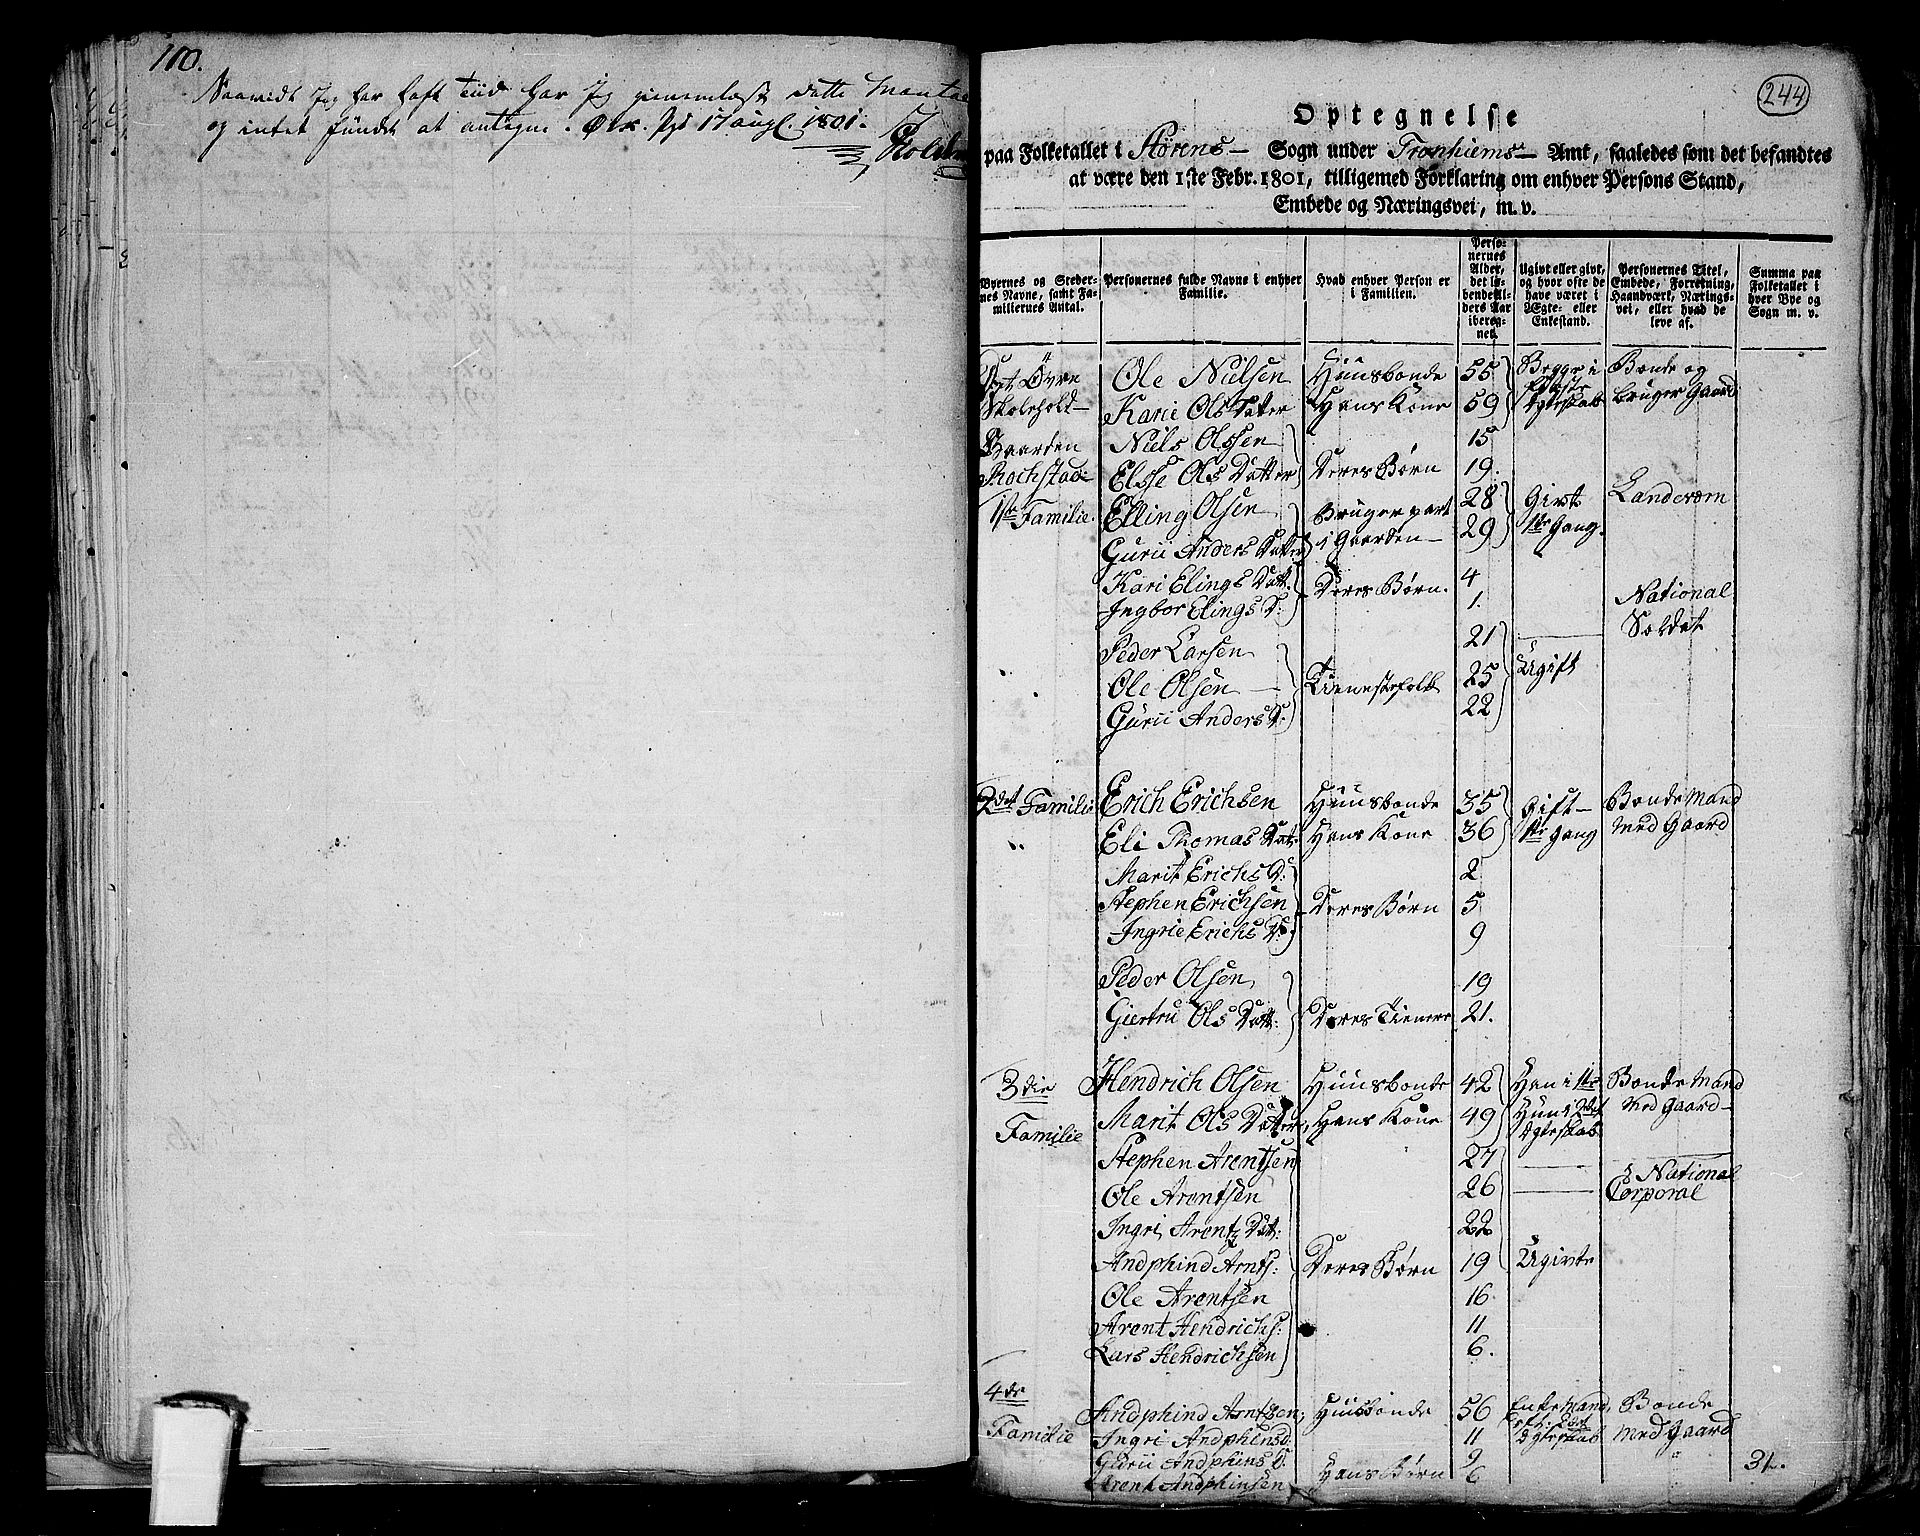 110.
Saavidt Jeg har haft tiid har Jeg gienemlæst dette
og intet fundt at antegne. 17 augl. 1801.
244
Optegnelse
paa Folketallet i Størens Sogn under Tronhiems Amt, saaledes som det befandtes
at være den 1ste Febr. 1801, tilligemed Forklaring om enhver Persons Stand,
Embede og Næringsvei, m. v.
Byernes og Stedernes Navne, samt Familiernes Antal.
Personernes fulde Navne i enhver Familie.
Hvad enhver Person er i Familien.
Personernes Alder, det løbendeAlders Aar iberegnet.
Ugivt eller givt, og hvor ofte de have været i Ægte- eller Enkestand.
Personernes Titel, Embede, Forretning, Haandværk, Næringsvei, eller hvad de leve af.
Summa paa Folketallet i hver Bye og Sogn m. v.
Det Øvre Ole Nielsen Huusbonde 55 Begge i Bonde og
Skolehold Karii Ols Datter Hans Kone 59 første Ægteskab bruger Gaard
Gaarden Niels Olssen 15
Rochstad Elsse Ols Datter Deres Børn 19.
1ste Familie. Elling Olsen Bruger part 28 Givt Landevern
Gurii Anders Datter i Gaarden 29 1ste Gang.
Kari Elings Datt. Deres Børn. 4
Ingbor Elings D: 1. National
Peder Larsen 21 Soldat
Ole Olsen Tienestefolk 25 Ugift
Gurii Anders D: 22
2det Familie Erich Erichsen Huusbonde 35 Gift BondeMand
Eli Thomas Dat: Hans Kone 36 1ste Gang med Gaard
Marit Erichs D: 2
Stephen Erichsen Deres Børn 5
Ingrie Erichs D: 9
Peder Olsen 19
Giertru Ols Datt: Deres Tienere 21.
3die Hendrich Olsen Huusbonde 42 Han i 1ste BondeMand
Familie Marit Ols Datter, Hans Kone 49 Hun i 2det Ægteskab med Gaard
Stephen Arentsen 27 National
Ole Arentsen 26 Corporal
Ingri Arentz Dat: 22
Andphind Arnts: Deres Børn 19 Ugivte
Ole Arentsen 16
Arent Hendrichs: 11
Lars Hendrichsen 6.
4de Andphind Arntsen, Huusbonde 56 EnkeMand Bonde
Familie Ingri Andphensd. 11 eft. 2det Ægteskab med Gaard
Gurii Andphins D. 9
Arent Andphinsen Hans Børn 6 31.